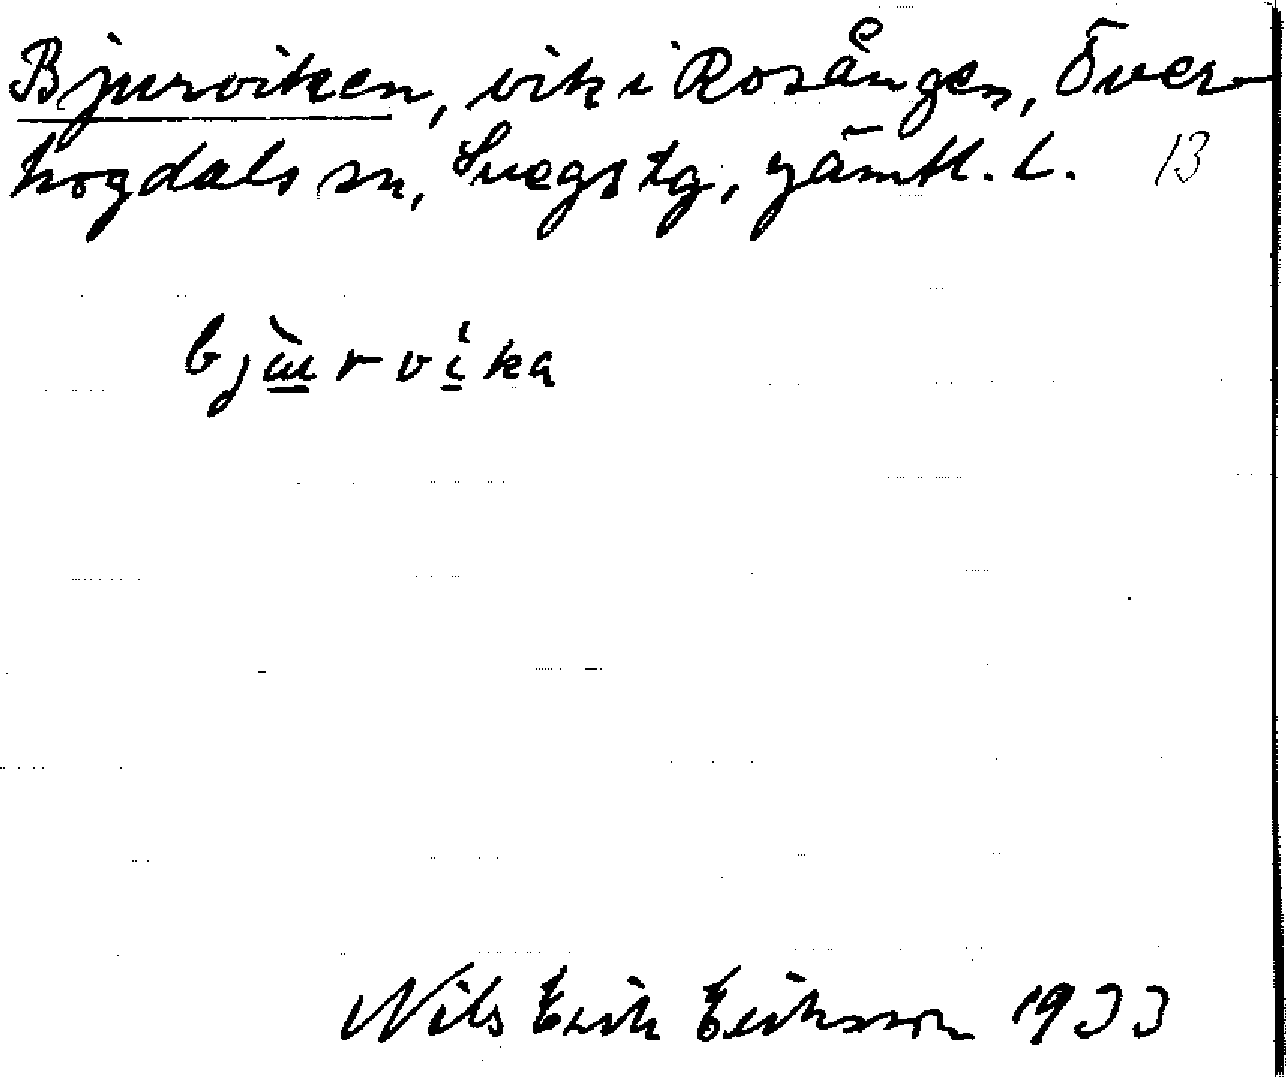 Bjurviken, vik i Rosången, Över-
hogdals sn, Svegs tg, Jämtl. L. 13
bjùrvíka
Nils Erik Eriksson 1933